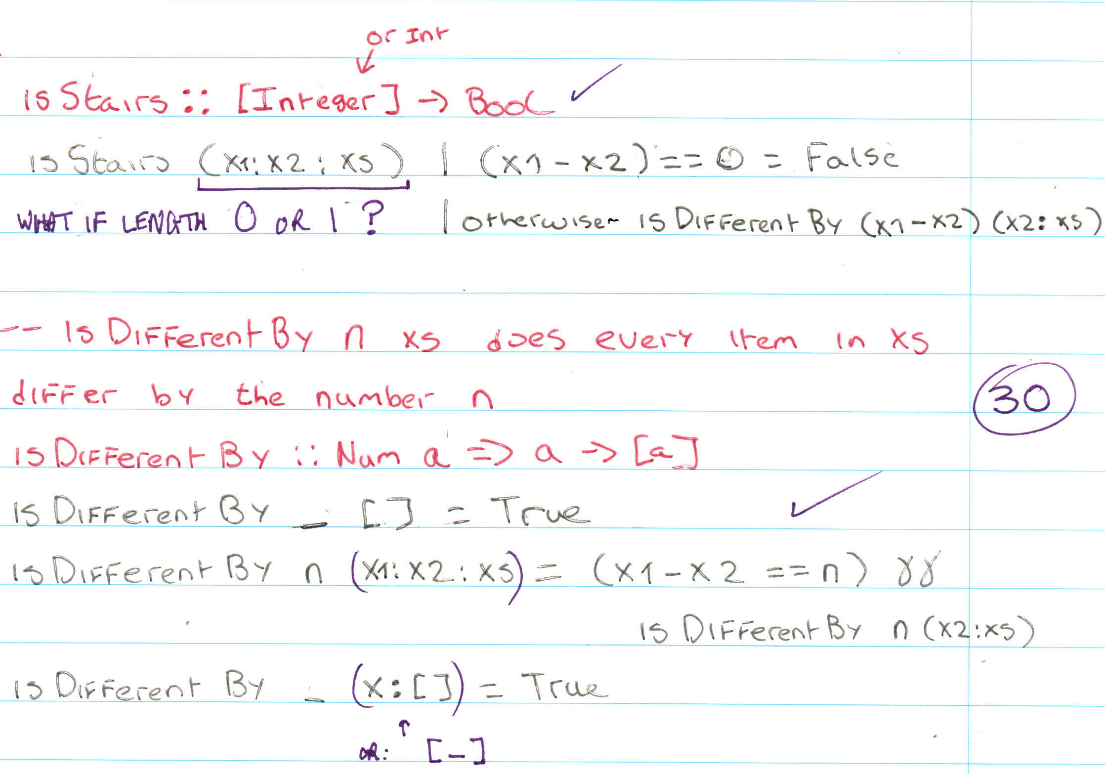 or Int
isStairs :: [Integer] -> Bool ✓
isStairs (x1:x2:xs) | (x1-x2)==0 = False
WHAT IF LENGTH 0 OR 1 ? | otherwise~ isDifferentBy (x1-x2) (x2:xs)
-- isDifferentBy n xs does every item in xs
differ by the number n
30
isDifferentBy :: Num a => a -> [a]
isDifferentBy _ [] = True ✓
isDifferentBy n (x1:x2:xs) = (x1-x2 ==n) &&
isDifferentBy n (x2:xs)
isDifferentBy _ (x:[]) = True
OR: [_]